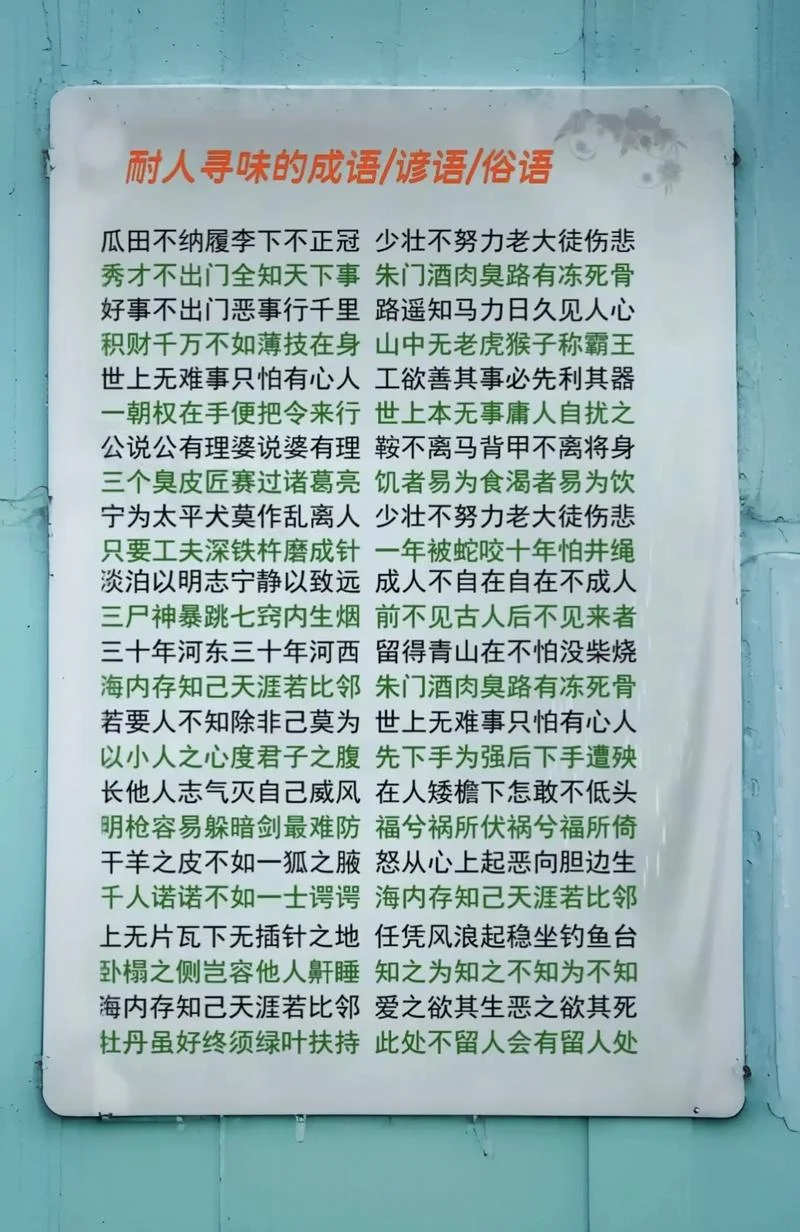 耐人寻味的成语/谚语/俗语
瓜田不纳履李下不正冠 少壮不努力老大徒伤悲
秀才不出门全知天下事 朱门酒肉臭路有冻死骨
好事不出门恶事行千里 路遥知马力日久见人心
积财千万不如薄技在身 山中无老虎猴子称霸王
世上无难事只怕有心人 工欲善其事必先利其器
一朝权在手便把令来行 世上本无事庸人自扰之
公说公有理婆说婆有理 鞍不离马背甲不离将身
三个臭皮匠赛过诸葛亮 饥者易为食渴者易为饮
宁为太平犬莫作乱离人 少壮不努力老大徒伤悲
只要工夫深铁杵磨成针 一年被蛇咬十年怕井绳
淡泊以明志宁静以致远 成人不自在自在不成人
三尸神暴跳七窍内生烟 前不见古人后不见来者
三十年河东三十年河西 留得青山在不怕没柴烧
海内存知己天涯若比邻 朱门酒肉臭路有冻死骨
若要人不知除非己莫为 世上无难事只怕有心人
以小人之心度君子之腹 先下手为强后下手遭殃
长他人志气灭自己威风 在人矮檐下怎敢不低头
明枪容易躲暗剑最难防 福兮祸所伏祸兮福所倚
干羊之皮不如一狐之腋 怒从心上起恶向胆边生
千人诺诺不如一士谔谔 海内存知己天涯若比邻
上无片瓦下无插针之地 任凭风浪起稳坐钓鱼台
卧榻之侧岂容他人鼾睡 知之为知之不知为不知
海内存知己天涯若比邻 爱之欲其生恶之欲其死
牡丹虽好终须绿叶扶持 此处不留人会有留人处